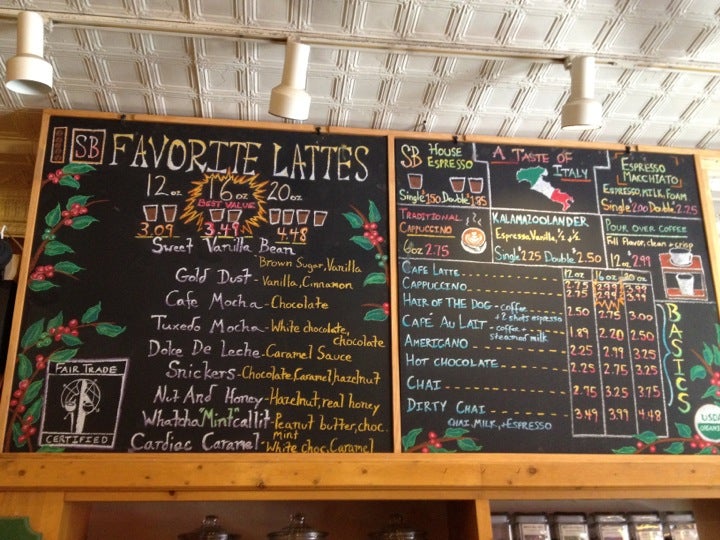 SB FAVORITE LATTES
12oz 16oz 20oz
BEST VALUE
3.09 3.49 4.48
Sweet Vanilla Bean
Brown Sugar, Vanilla
Gold Dust - Vanilla, Cinnamon
Cafe Mocha - Chocolate
Tuxedo Mocha - White chocolate, chocolate
Dolce De Leche - Caramel Sauce
Snickers - Chocolate, Caramel, hazelnut
Nut And Honey - Hazelnut, real honey
Whatcha "Mint" callit - Peanut butter, choc. mint
Cardiac Caramel - White choc, Caramel
FAIR TRADE
CERTIFIED
SB HOUSE ESPRESSO
Single 1.50 Double 1.85
A TASTE OF ITALY
ESPRESSO MACCHIATO
ESPRESSO, MILK FOAM
Single 2.00 Double 2.25
TRADITIONAL CAPPUCCINO
6oz 2.75
KALAMAZOOLANDER
Espresso, Vanilla, ½ & ½
Single 2.25 Double 2.50
POUR OVER COFFEE
Full Flavor, clean & crisp
12oz 2.99
12oz 16oz 20oz
CAFE LATTE
CAPPUCCINO
HAIR OF THE DOG - coffee + 2 shots espresso 2.50 2.75 3.00
CAFÉ AU LAIT - coffee + steamed milk 1.89 2.20 2.50
AMERICANO 2.25 2.99 3.25
HOT CHOCOLATE 2.25 2.75 3.25
CHAI 2.75 3.25 3.75
DIRTY CHAI 3.49 3.99 4.48
CHAI, MILK, + ESPRESSO
BASICS
USDA
ORGANIC